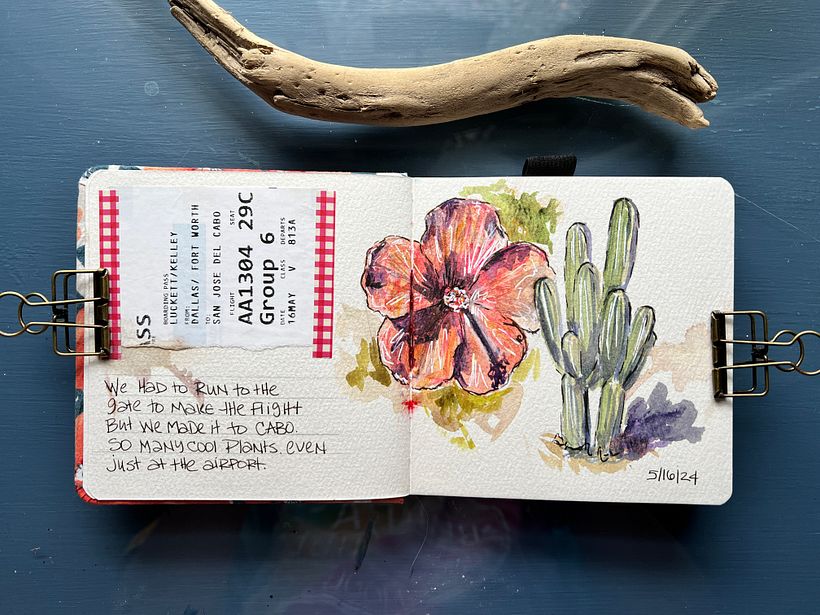 ASS
BOARDING PASS
LUCKETT/KELLEY
FROM:
DALLAS/ FORT WORTH
TO:
SAN JOSE DEL CABO
FLIGHT SEAT
AA1304 29C
Group 6
DATE CLASS DEPARTS
16MAY V 813A
We HAD to RUN to the
gate to MAKE the Flight
But we MADE it to CABO.
SO MANY COOL PLANTS. EVEN
just at the AIRPORT.
5/16/24